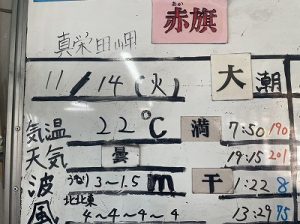 赤旗
真栄田岬
11/14(火) 大潮
気温 22℃ 満 7:50 190
天気 曇 19:15 201
波 うねり 3〜1.5m 干 1:22 8
風 北北東 4〜4〜4〜4 13:29 95